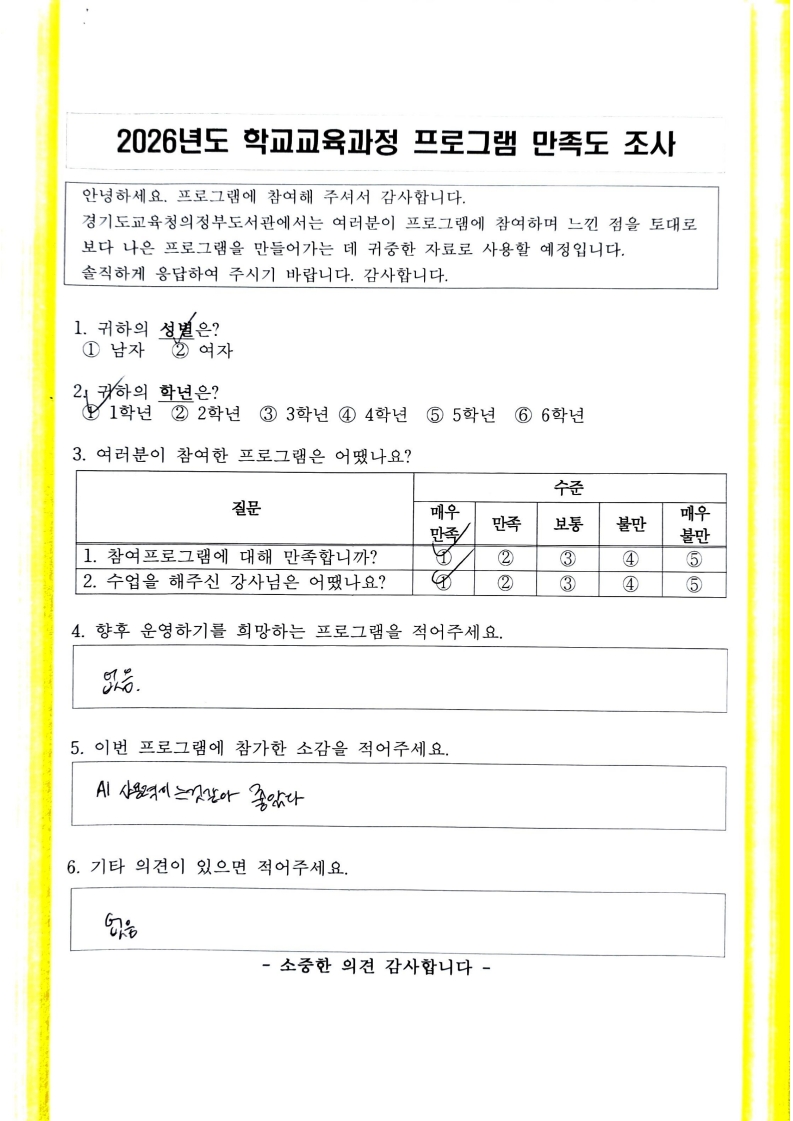 2026년도 학교교육과정 프로그램 만족도 조사
안녕하세요. 프로그램에 참여해 주셔서 감사합니다.
경기도교육청의정부도서관에서는 여러분이 프로그램에 참여하며 느낀 점을 토대로
보다 나은 프로그램을 만들어가는 데 귀중한 자료로 사용할 예정입니다.
솔직하게 응답하여 주시기 바랍니다. 감사합니다.
1. 귀하의 성별은?
① 남자 ② 여자
2. 귀하의 학년은?
① 1학년 ② 2학년 ③ 3학년 ④ 4학년 ⑤ 5학년 ⑥ 6학년
3. 여러분이 참여한 프로그램은 어땠나요?
질문 수준
매우 만족 만족 보통 불만 매우 불만
1. 참여프로그램에 대해 만족합니까? ① ② ③ ④ ⑤
2. 수업을 해주신 강사님은 어땠나요? ① ② ③ ④ ⑤
4. 향후 운영하기를 희망하는 프로그램을 적어주세요.
없음.
5. 이번 프로그램에 참가한 소감을 적어주세요.
AI 사용력이 는것같아 좋았다
6. 기타 의견이 있으면 적어주세요.
없음
- 소중한 의견 감사합니다 -